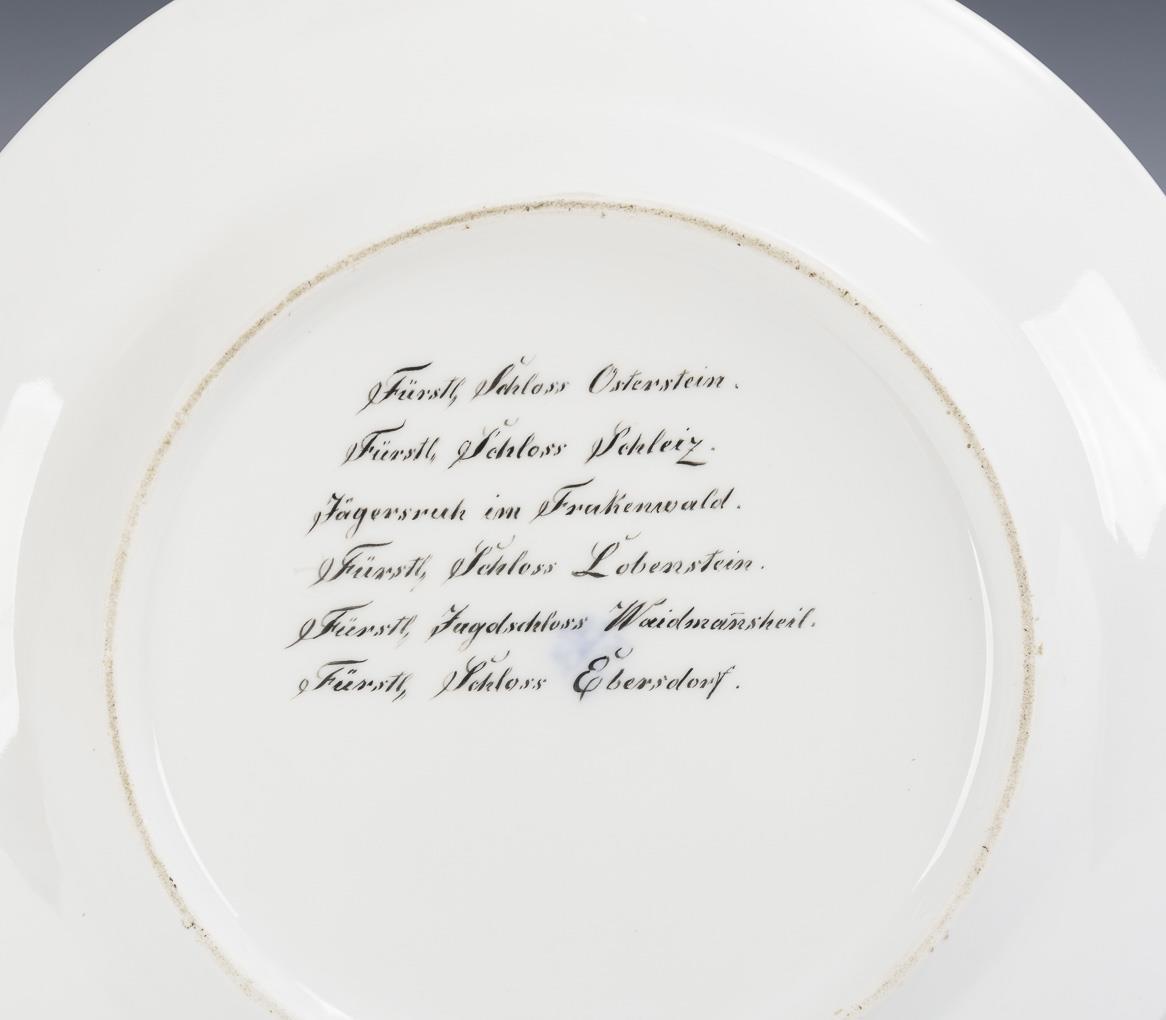 Fürstl, Schloss Osterstein.
Fürstl, Schloss Schleiz.
Jägersruh im Frakenwald.
Fürstl, Schloss Lobenstein.
Fürstl, Jagdschloss Waidman̄sheil.
Fürstl, Schloss Ebersdorf.